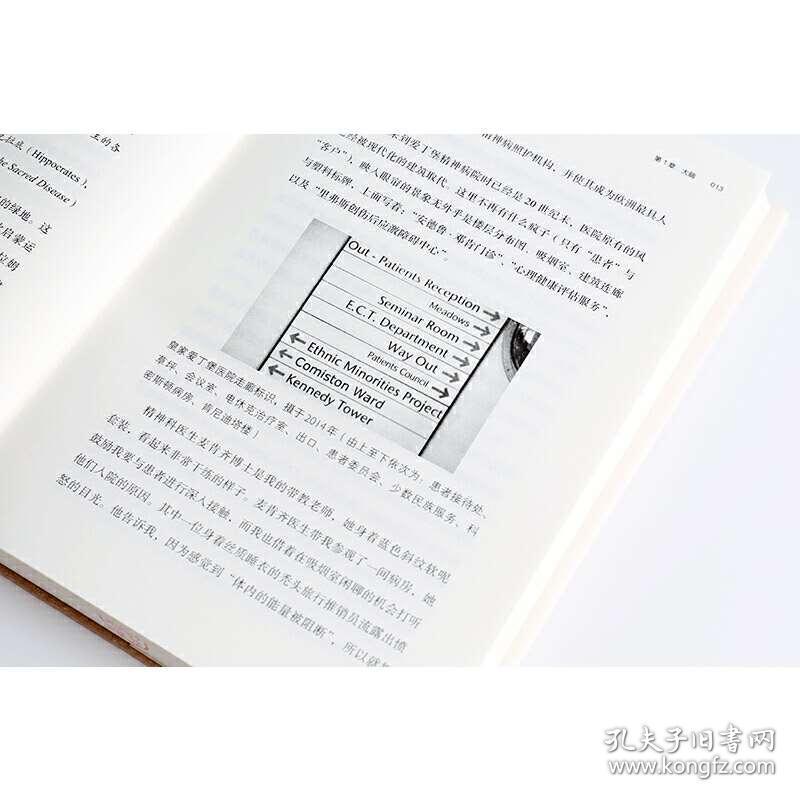 互的各
克拉底（Hippocrates），
he Sacred Disease）
的绿地。这
启蒙运
拉姆
第1章 大脑 013
精神病照护机构，并使其成为欧洲最具人
来到爱丁堡精神病院时已经是20世纪末，医院原有的风
已经被现代化的建筑取代。这里不再有什么疯子（只有“患者”与
“客户”），映入眼帘的景象无外乎是楼层分布图、吸烟室、建筑连廊
与塑料标牌，上面写着：“安德鲁·邓肯门诊”、“心理健康评估服务”，
以及“里弗斯创伤后应激障碍中心”。
Out - Patients Reception
Meadows
Seminar Room
E.C.T. Department
Way Out
Patients Council
Ethnic Minorities Project
Comiston Ward
Kennedy Tower
皇家爱丁堡医院走廊标识，摄于2014年（由上至下依次为：患者接待处、
草坪、会议室、电休克治疗室、出口、患者委员会、少数民族服务、科
密斯顿病房、肯尼迪塔楼）
精神科医生麦肯齐博士是我的带教老师，她身着蓝色斜纹软呢
套装，看起来非常干练的样子。麦肯齐医生带我参观了一间病房，她
鼓励我要与患者进行深入接触，而我也借着在吸烟室闲聊的机会打听
他们入院的原因。其中一位身着丝质睡衣的秃头旅行推销员流露出愤
怒的目光。他告诉我，因为感觉到“体内的能量被阻断”，所以就
孔夫子旧书网
www.kongfz.com